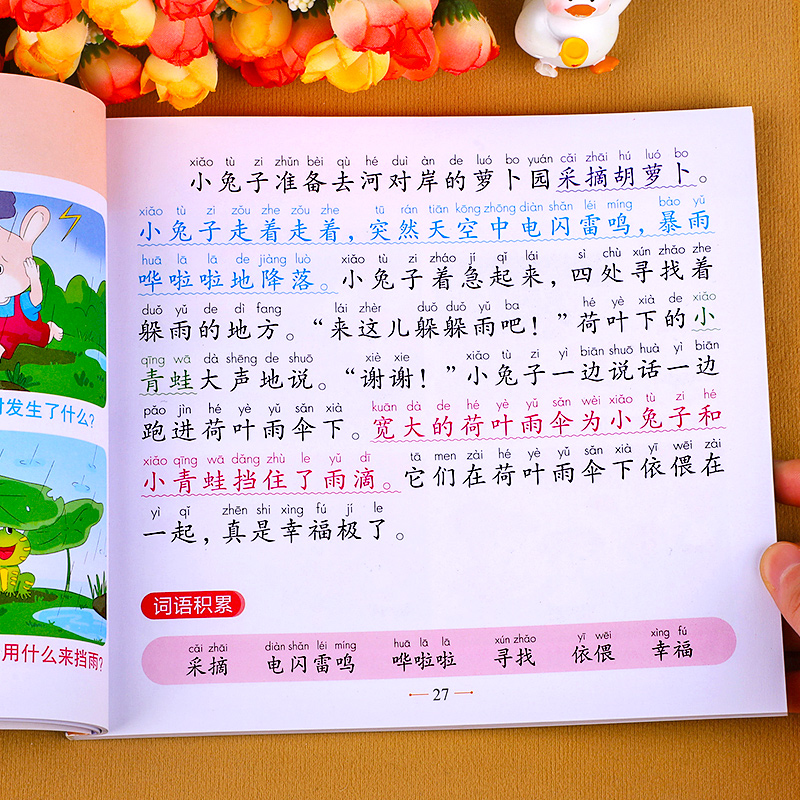 时发生了什么？
用什么来挡雨？
xiǎo tù zi zhǔn bèi qù hé duì àn de luó bo yuán cǎi zhāi hú luó bo
小兔子准备去河对岸的萝卜园采摘胡萝卜。
xiǎo tù zi zǒu zhe zǒu zhe tū rán tiān kōng zhōng diàn shǎn léi míng bào yǔ
小兔子走着走着，突然天空中电闪雷鸣，暴雨
huā lā lā de jiàng luò xiǎo tù zi zháo jí qǐ lái sì chù xún zhǎo zhe
哗啦啦地降落。小兔子着急起来，四处寻找着
duǒ yǔ de dì fang lái zhèr duǒ duo yǔ ba hé yè xià de xiǎo
躲雨的地方。“来这儿躲躲雨吧！”荷叶下的小
qīng wā dà shēng de shuō xiè xie xiǎo tù zi yì biān shuō huà yì biān
青蛙大声地说。“谢谢！”小兔子一边说话一边
pǎo jìn hé yè yǔ sǎn xià kuān dà de hé yè yǔ sǎn wèi xiǎo tù zi hé
跑进荷叶雨伞下。宽大的荷叶雨伞为小兔子和
xiǎo qīng wā dǎng zhù le yǔ dī tā men zài hé yè yǔ sǎn xià yī wēi zài
小青蛙挡住了雨滴。它们在荷叶雨伞下依偎在
yì qǐ zhēn shi xìng fú jí le
一起，真是幸福极了。
词语积累
cǎi zhāi diàn shǎn léi míng huā lā lā xún zhǎo yī wēi xìng fú
采摘 电闪雷鸣 哗啦啦 寻找 依偎 幸福
27